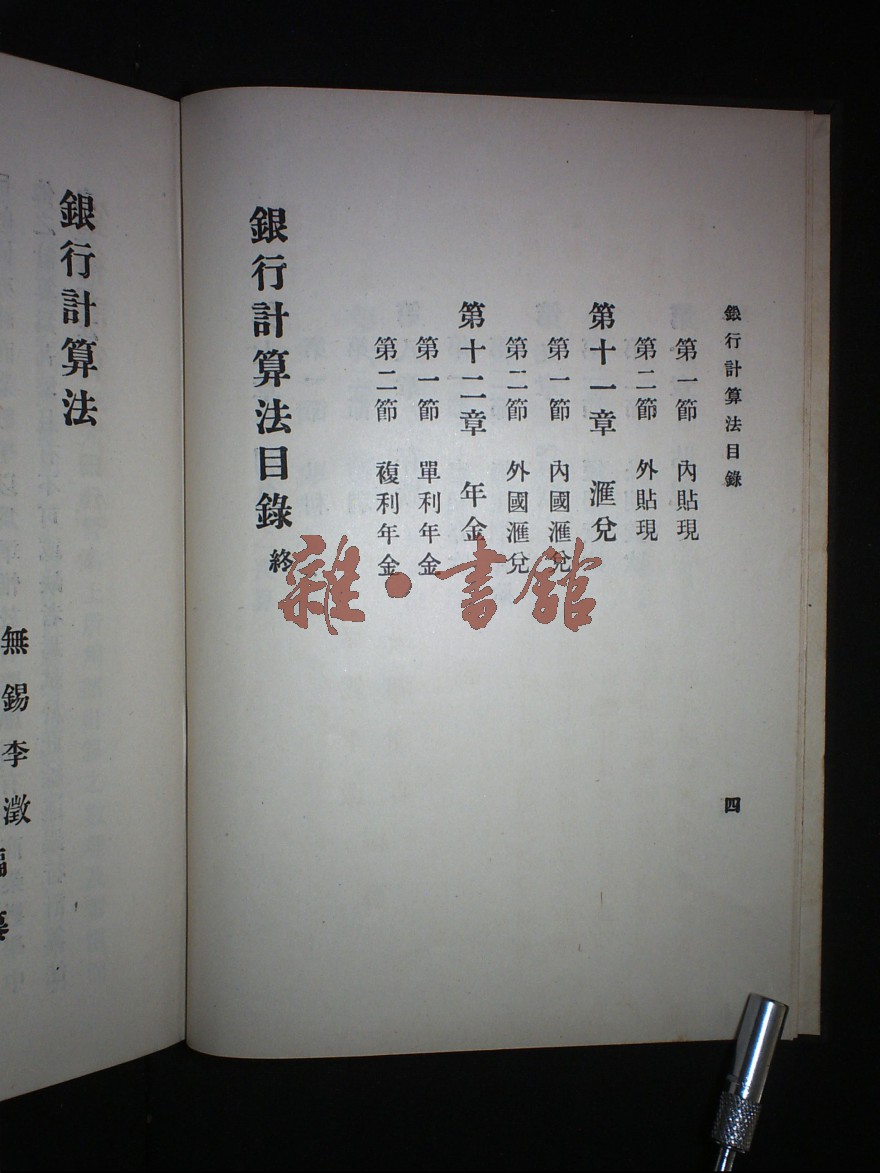 銀行計算法目錄
第一節 內貼現
第二節 外貼現
第十一章 滙兌
第一節 內國滙兌
第二節 外國滙兌
第十二章 年金
第一節 單利年金
第二節 複利年金
銀行計算法目錄 終
四
銀行計算法
無錫李澂編纂
雜·書館